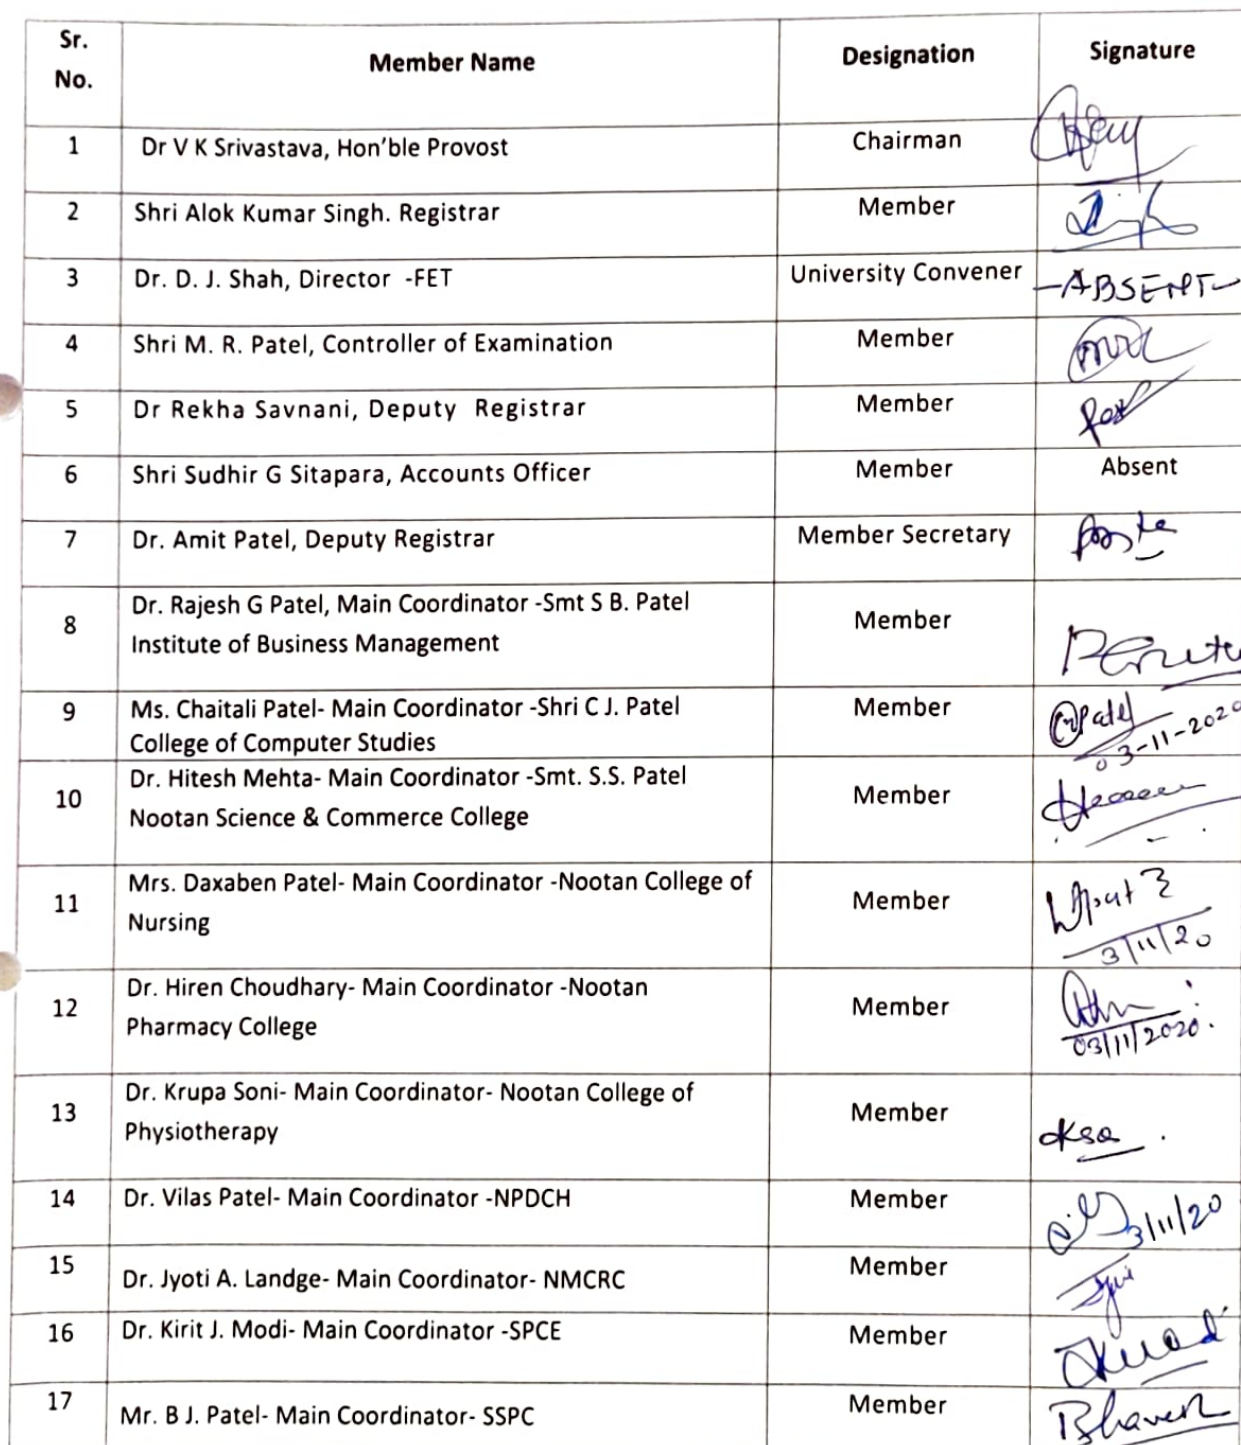 Sr. No. Member Name Designation Signature
1 Dr V K Srivastava, Hon'ble Provost Chairman
2 Shri Alok Kumar Singh. Registrar Member
3 Dr. D. J. Shah, Director -FET University Convener -ABSENT-
4 Shri M. R. Patel, Controller of Examination Member
5 Dr Rekha Savnani, Deputy Registrar Member
6 Shri Sudhir G Sitapara, Accounts Officer Member Absent
7 Dr. Amit Patel, Deputy Registrar Member Secretary
8 Dr. Rajesh G Patel, Main Coordinator -Smt S B. Patel
Institute of Business Management Member
9 Ms. Chaitali Patel- Main Coordinator -Shri C J. Patel Member
College of Computer Studies 03-11-2020
10 Dr. Hitesh Mehta- Main Coordinator -Smt. S.S. Patel
Nootan Science & Commerce College Member
11 Mrs. Daxaben Patel- Main Coordinator -Nootan College of
Nursing Member 3/11/20
12 Dr. Hiren Choudhary- Main Coordinator -Nootan
Pharmacy College Member 03/11/2020.
13 Dr. Krupa Soni- Main Coordinator- Nootan College of
Physiotherapy Member
14 Dr. Vilas Patel- Main Coordinator -NPDCH Member 3/11/20
15 Dr. Jyoti A. Landge- Main Coordinator- NMCRC Member
16 Dr. Kirit J. Modi- Main Coordinator -SPCE Member
17 Mr. B J. Patel- Main Coordinator- SSPC Member Bhavesh